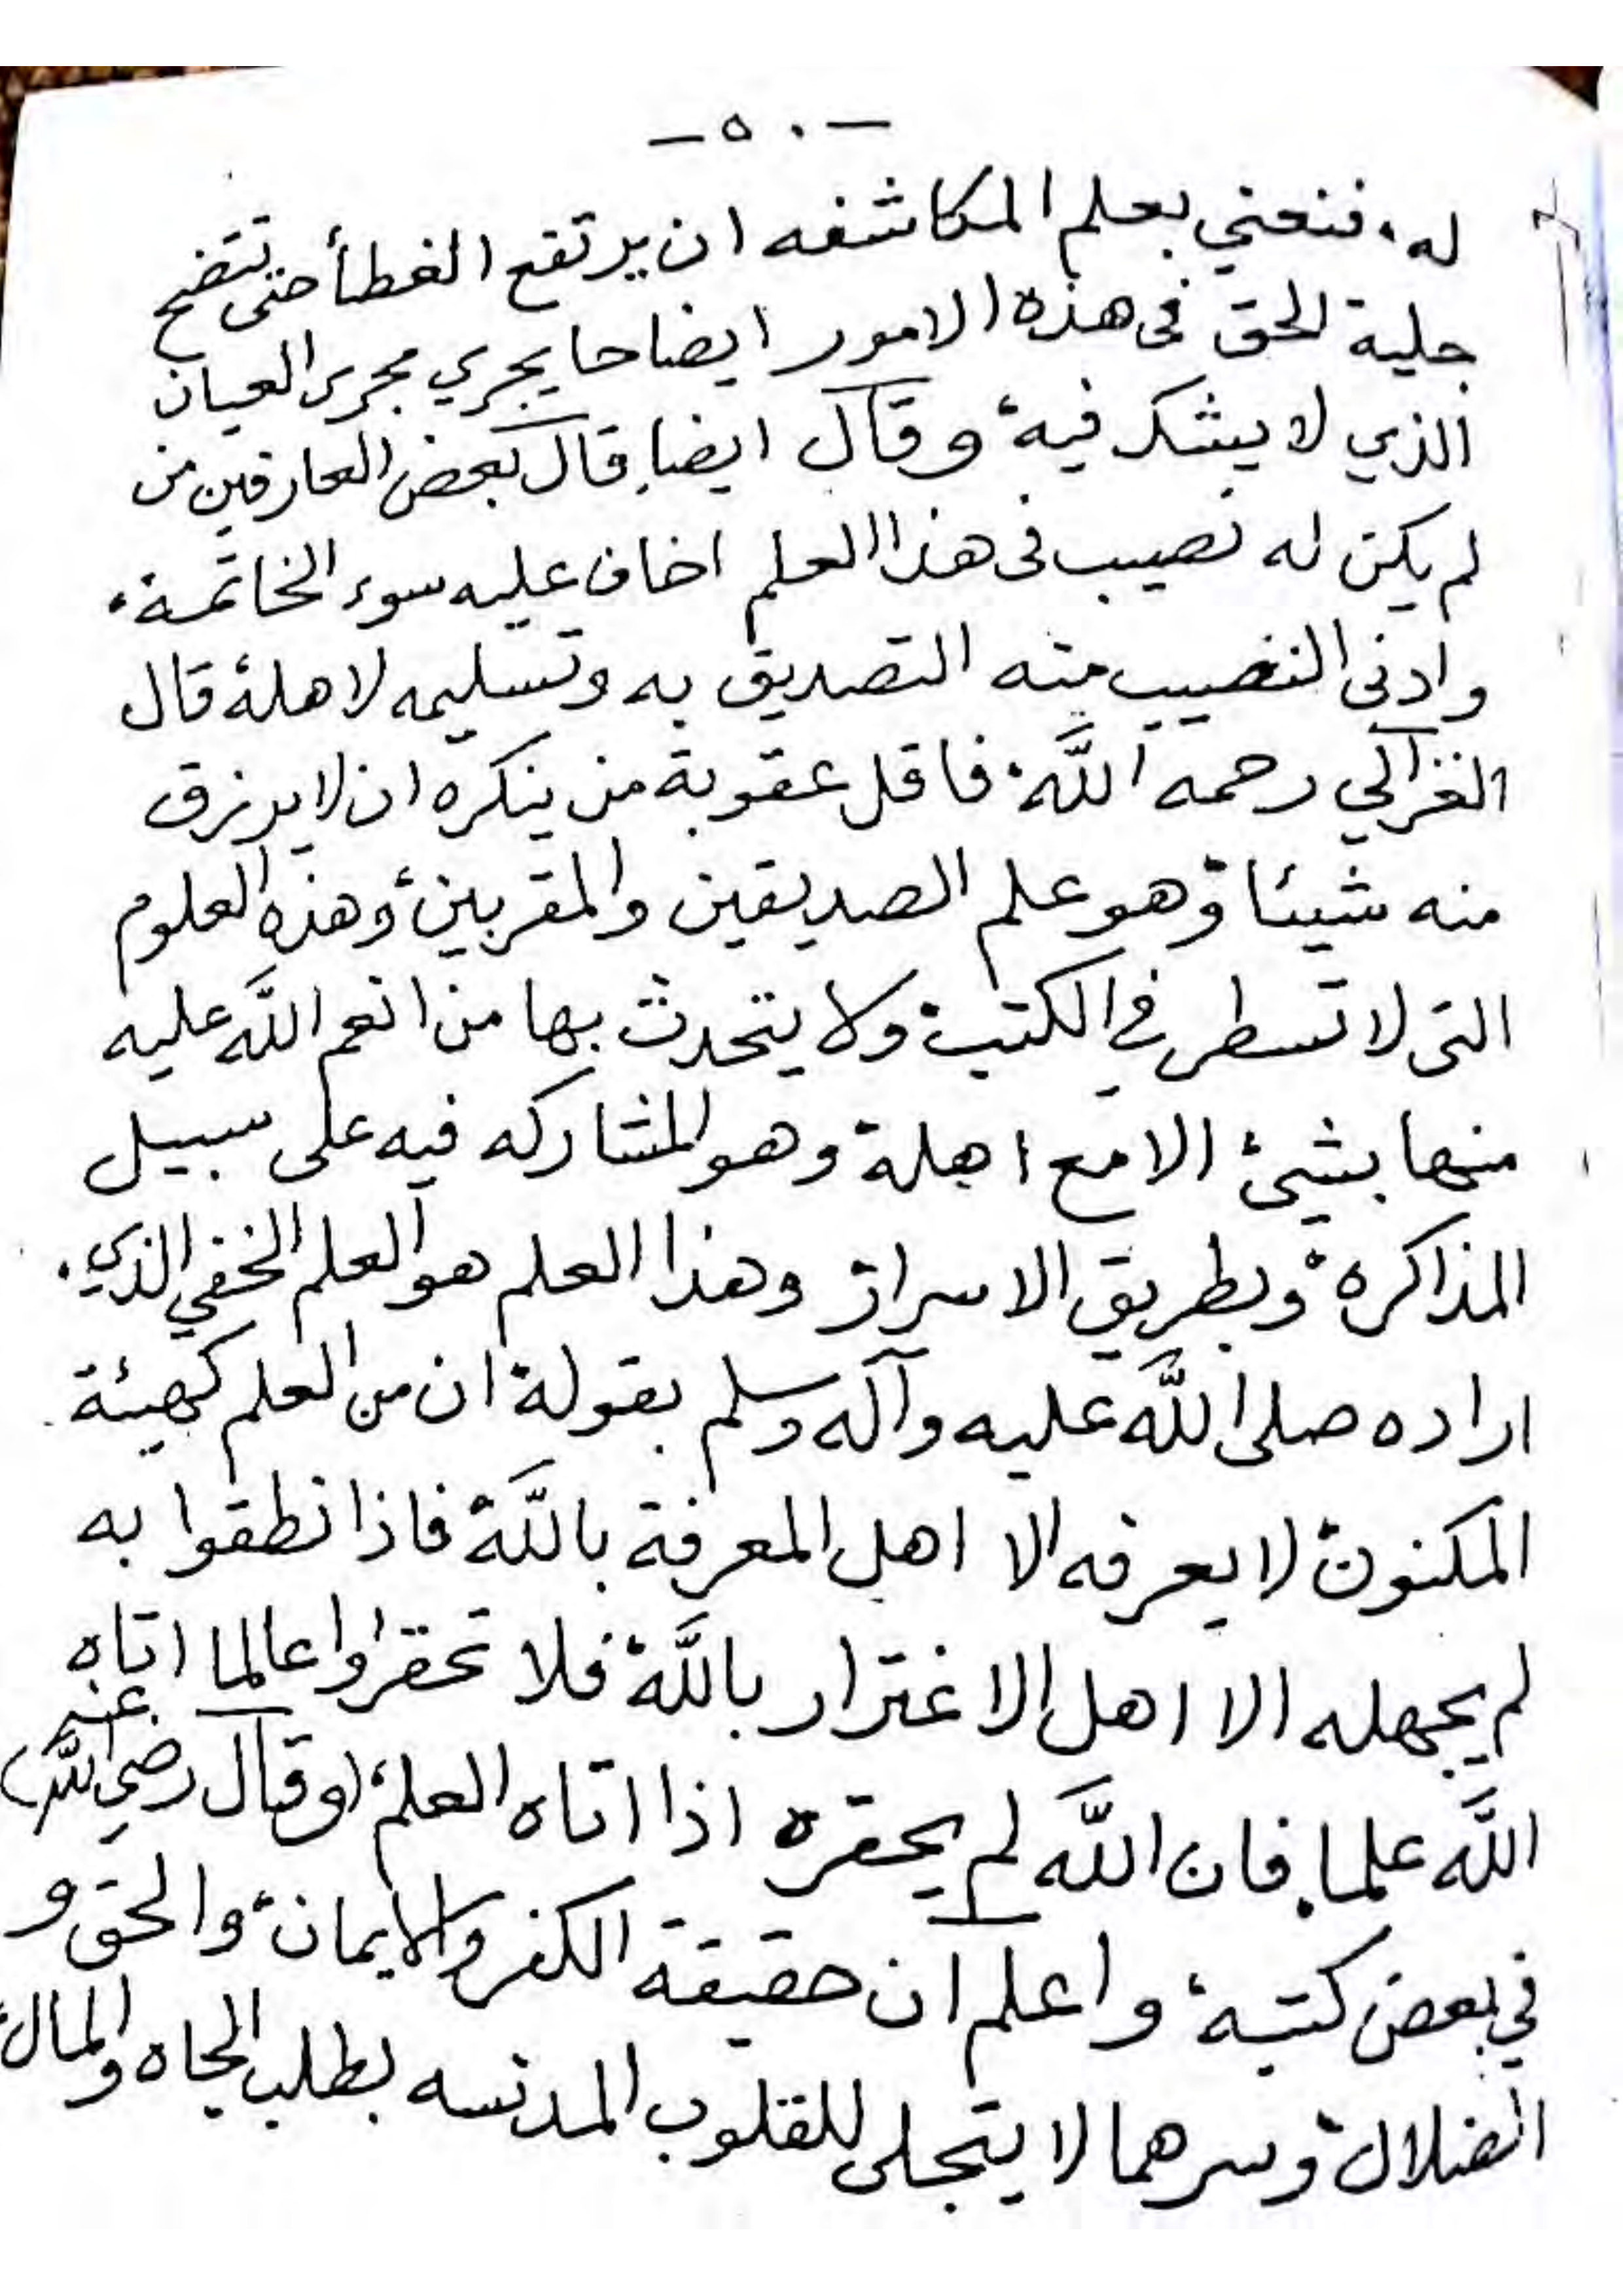 - ٥٠ -
له، فنعني بعلم المكاشفه ان يرتفع الغطأ حتى تتضح
جلية الحق فى هذه الامور ايضاحا يجري مجرى العيان
الذي لا يشك فيه، وقال ايضا، قال بعض العارفين من
لم يكن له نصيب فى هذا العلم اخاف عليه سوء الخاتمة،
وادنى النصيب منه التصديق به وتسليمه لاهله، قال
الغزالي رحمه الله، فاقل عقوبة من ينكره ان لا يرزق
منه شيئا، وهو علم الصديقين والمقربين، وهذه العلوم
التى لا تسطر في الكتب، ولا يتحدث بها من انعم الله عليه
منها بشيئ الا مع اهله، وهو المشاركه فيه على سبيل
المذاكره، وبطريق الاسرار، وهذا العلم هو العلم الخفي الذي
اراده صلى الله عليه وآله وسلم بقوله، ان من العلم كهيئة
المكنون، لا يعرفه الا اهل المعرفة بالله، فاذا نطقوا به
لم يجهله الا اهل الاغترار بالله، فلا تحقروا عالما اتاه
الله علما، فان الله لم يحقره اذا اتاه العلم، (وقال رضي الله عنه)
في بعض كتبه، واعلم ان حقيقة الكفر والايمان، والحق و
الضلال، وسرهما لا يتجلى للقلوب المدنسه بطلب الجاه والمال،